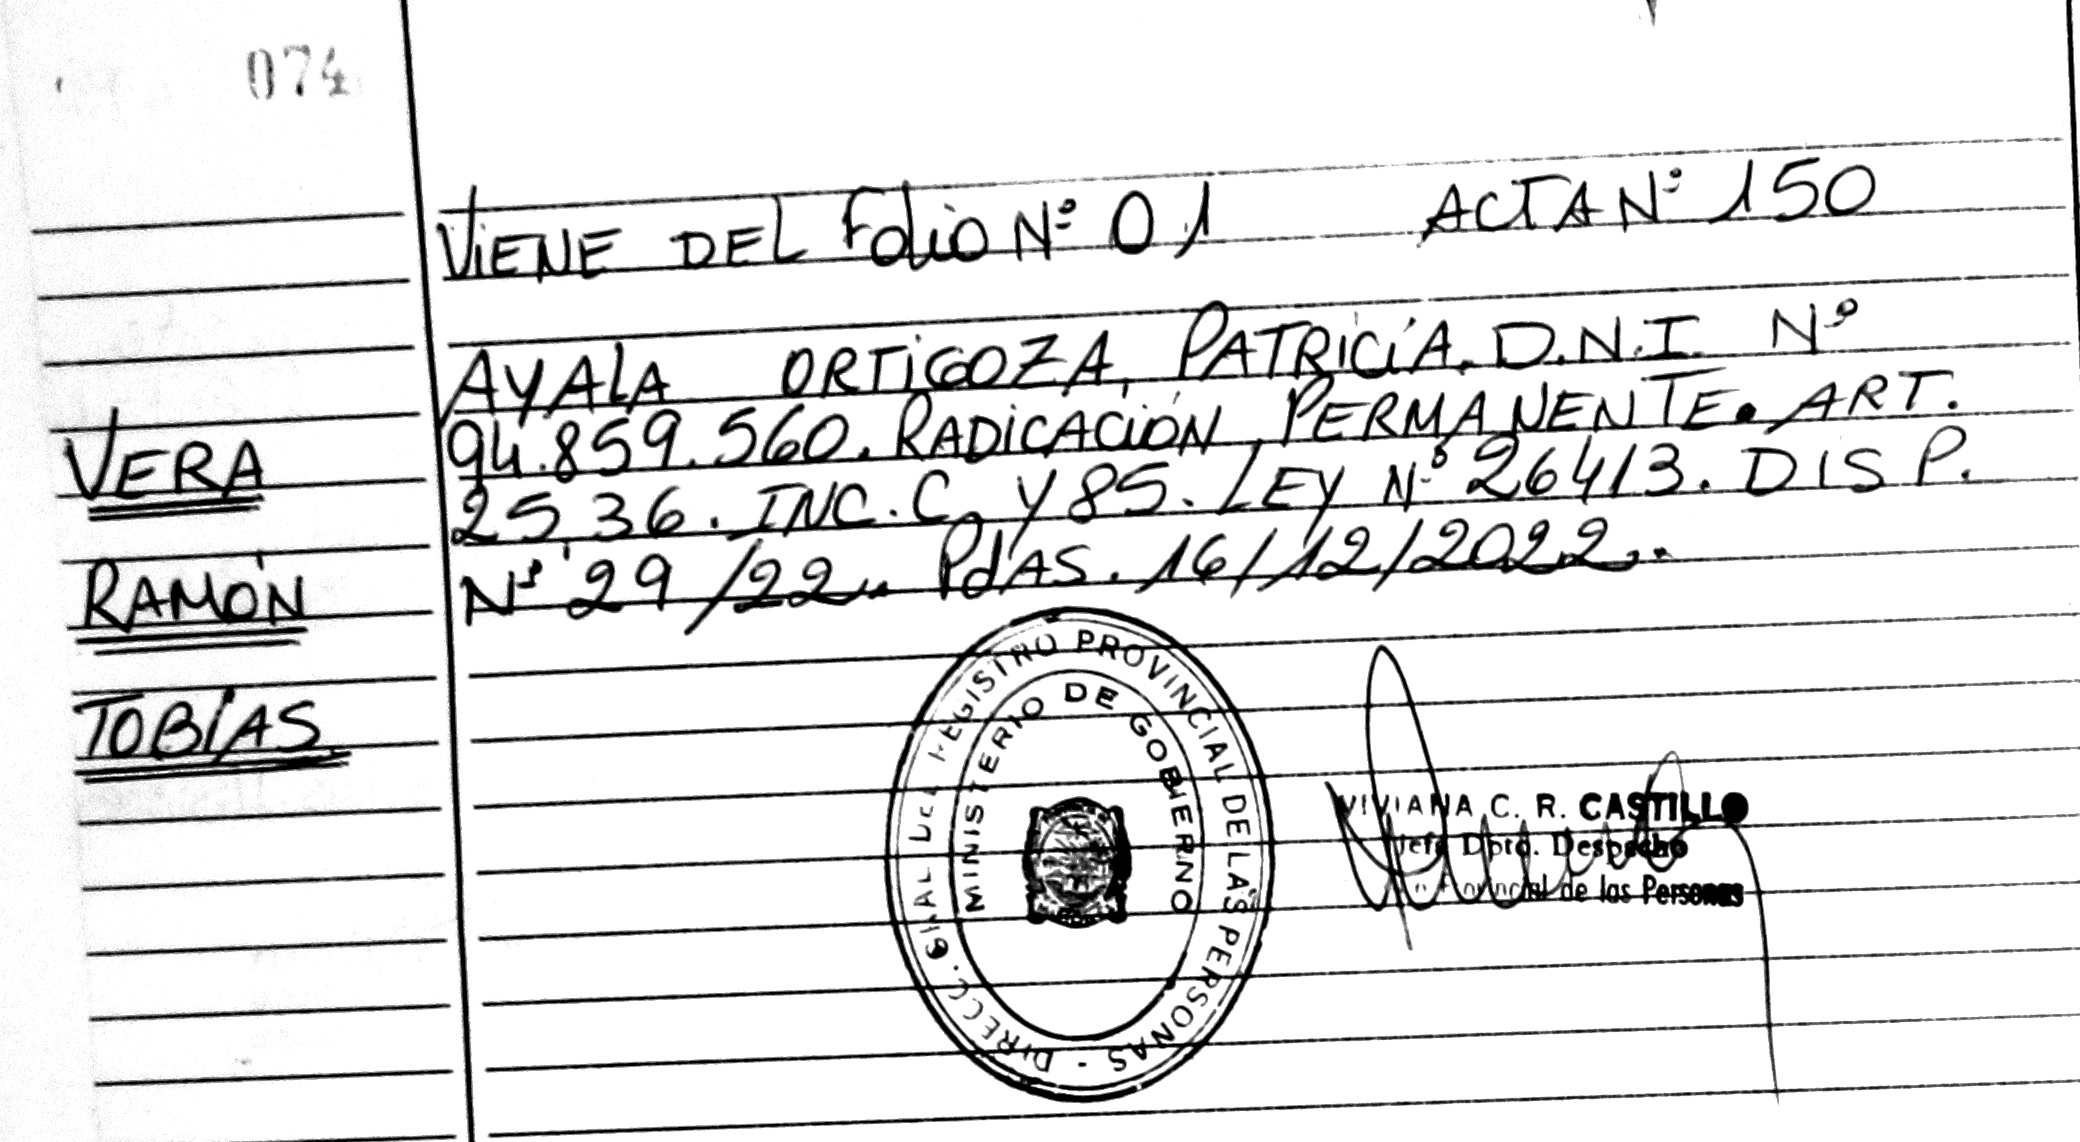 074
VIENE DEL Folio Nº 01 ACTA Nº 150
VERA
RAMÓN
TOBÍAS
AYALA ORTIGOZA, PATRICIA. D.N.I. Nº
94.859.560. RADICACIÓN PERMANENTE. ART.
25, 36. INC. C Y 85. LEY Nº 26413. DISP.
Nº 29/22. PdAS. 16/12/2022.
DIRECC. GRAL DEL REGISTRO PROVINCIAL DE LAS PERSONAS -
MINISTERIO DE GOBIERNO
VIVIANA C. R. CASTILLO
Jefa Dpto. Despacho
Provincial de las Personas